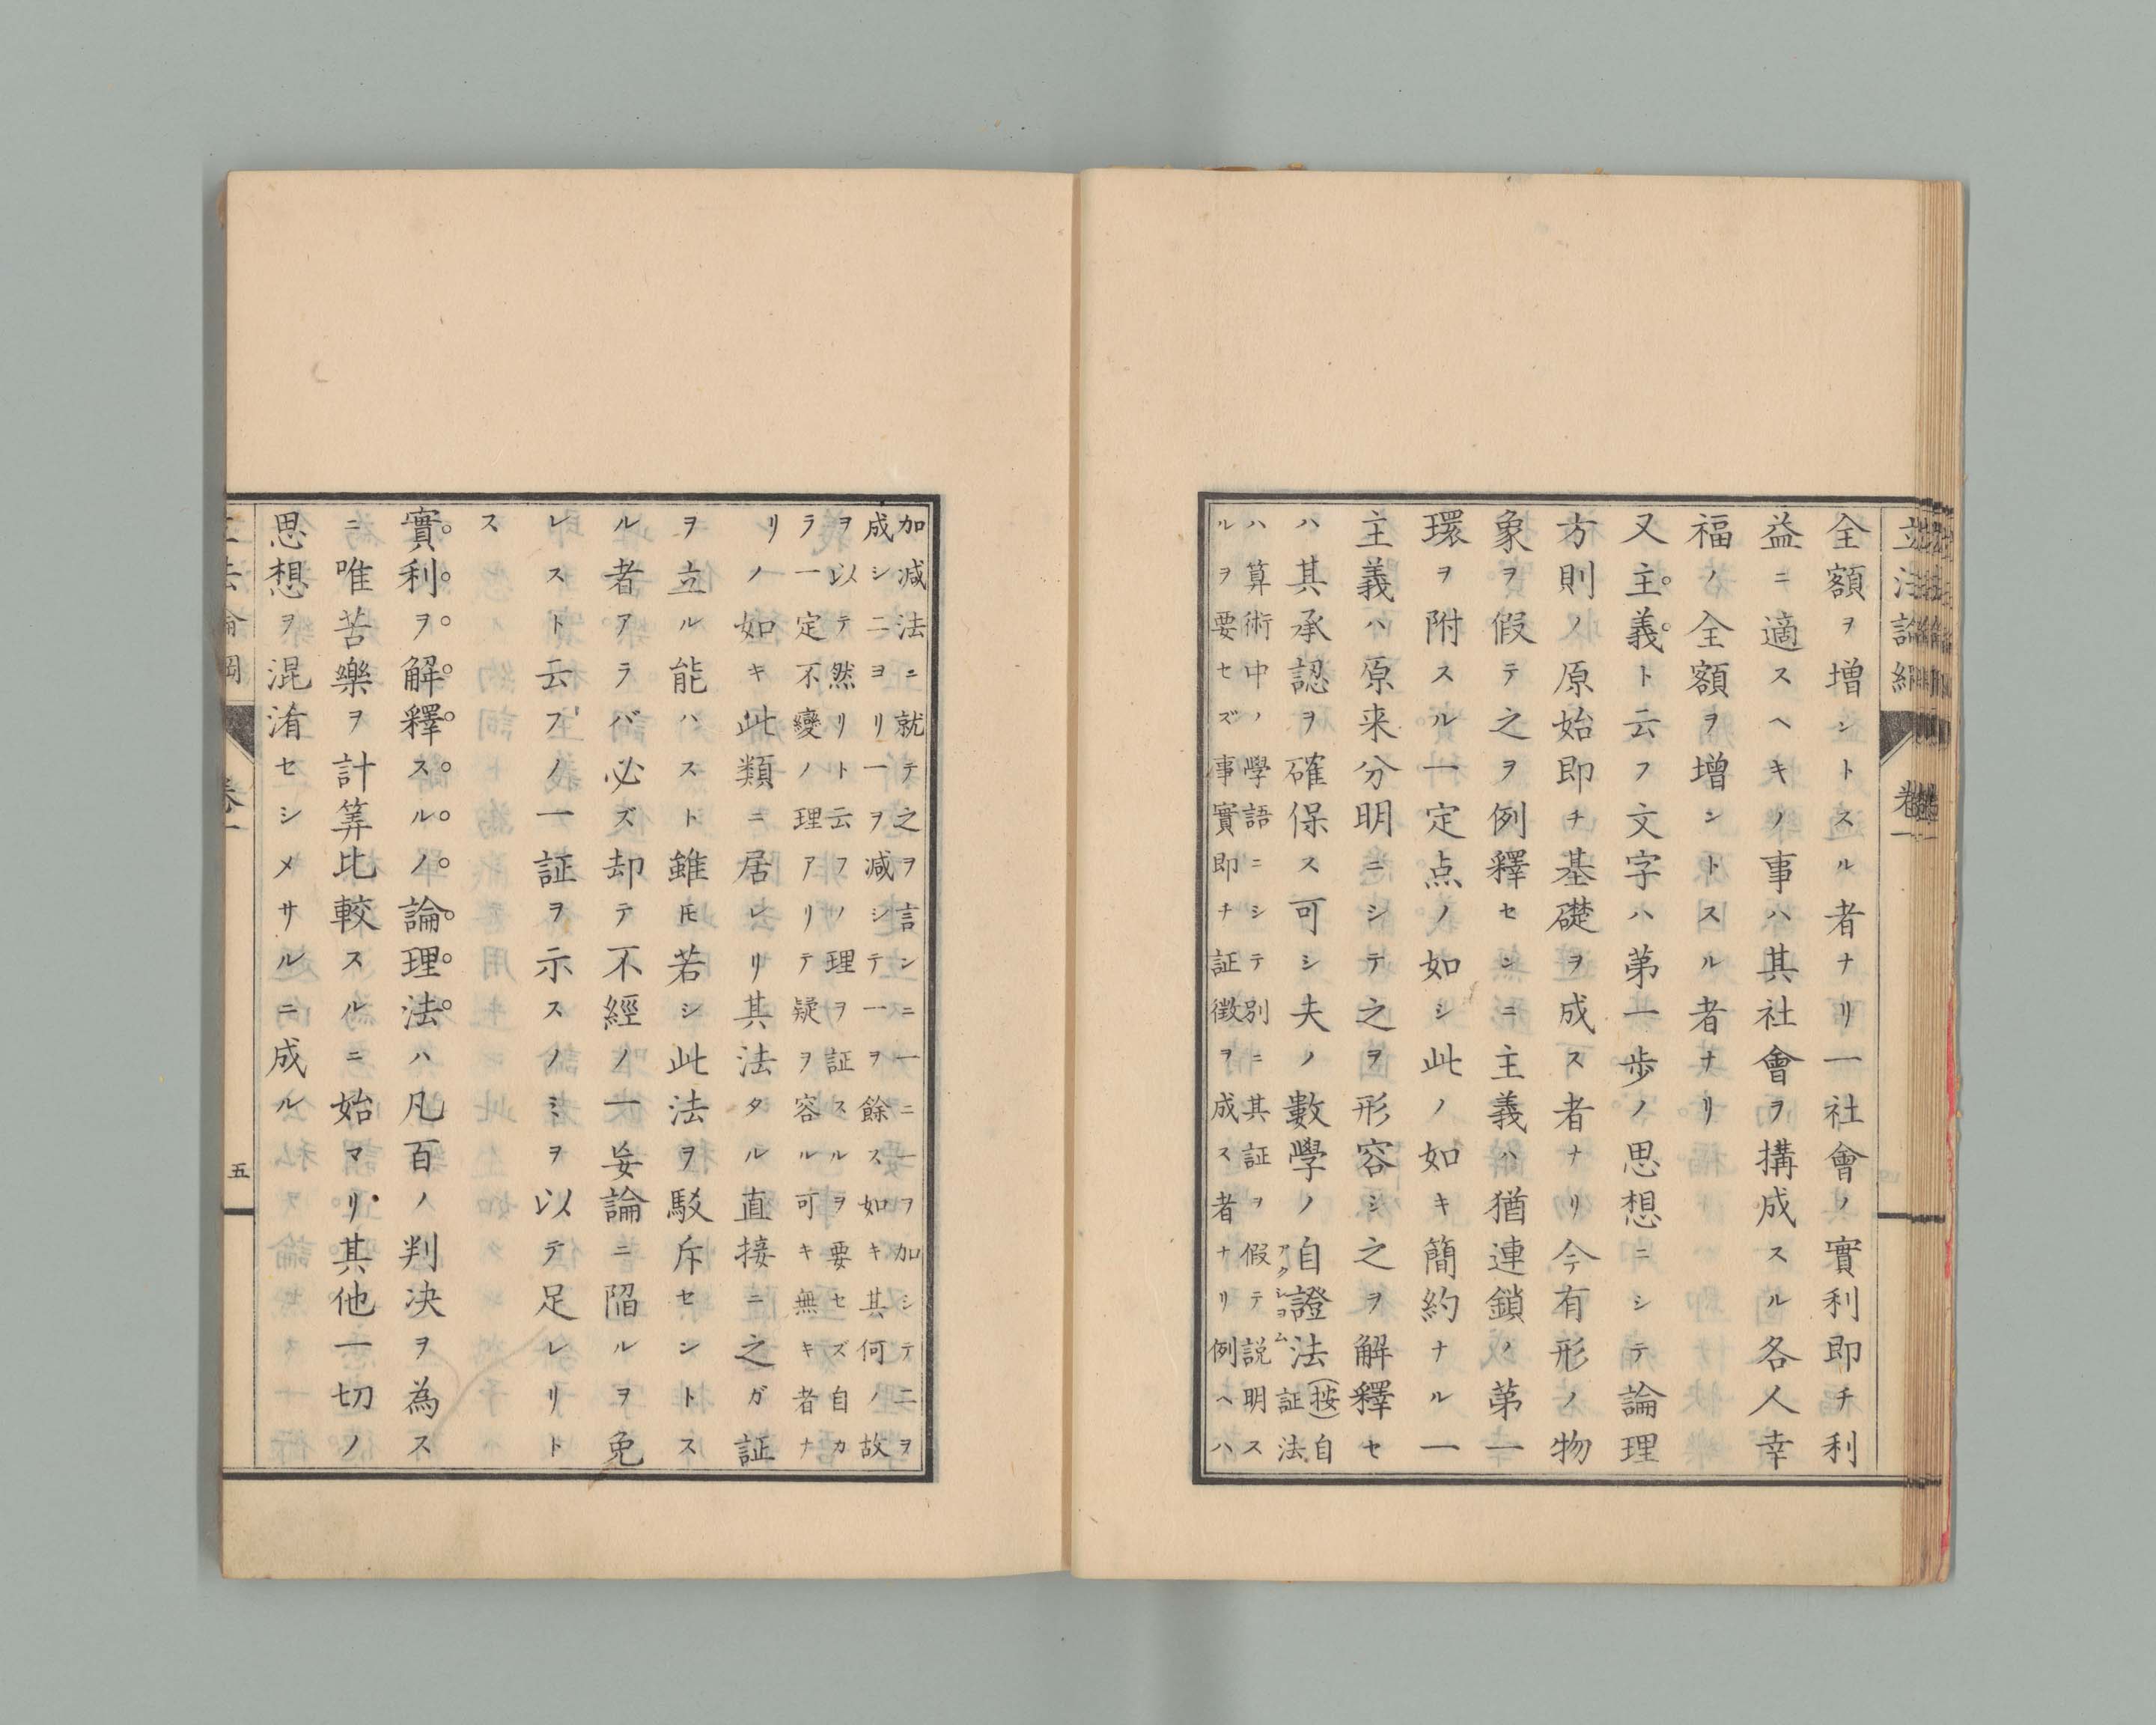 立法論綱
卷一
全額ヲ増シトスル者ナリ一社會ノ實利即チ利
益ニ適スヘキノ事ハ其社會ヲ搆成スル各人幸
福ノ全額ヲ増ントスル者ナリ
又主義ト云フ文字ハ苐一歩ノ思想ニシテ論理
方則ノ原始即チ基礎ヲ成ス者ナリ今有形ノ物
象ヲ假テ之ヲ例釋センニ主義ハ猶連鎖ノ苐一
環ヲ附スル一定点ノ如シ此ノ如キ簡約ナル一
主義ハ原来分明ニシテ之ヲ形容シ之ヲ解釋セ
ハ其承認ヲ確保ス可シ夫ノ數學ノ自證法(按)自
アクシヨム
証法
ハ算術中ノ學語ニシテ別ニ其証ヲ假テ説明ス
ルヲ要セズ事實即チ証徴ヲ成ス者ナリ例ヘハ
加减法ニ就テ之ヲ言ンニ一ニ一ヲ加シテ二ヲ
成シ二ヨリ一ヲ减シテ一ヲ餘ス如キ其何ノ故
ヲ以テ然リト云フノ理ヲ証スルヲ要セズ自カ
ラ一定不變ノ理アリテ疑ヲ容ル可キ無キ者ナ
リ
ノ如キ此類ニ居レリ其法タル直接ニ之ガ証
ヲ立ル能ハスト雖𪜈若シ此法ヲ駁斥セントス
ル者アラバ必ズ却テ不經ノ一妄論ニ陷ルヲ免
レスト云フノ一証ヲ示スノミヲ以テ足レリト
ス
實利ヲ解釋スルノ論理法ハ凡百ノ判决ヲ為ス
ニ唯苦樂ヲ計筭比較スルニ始マリ其他一切ノ
思想ヲ混淆セシメサルニ成ル
立法論綱
卷一
五